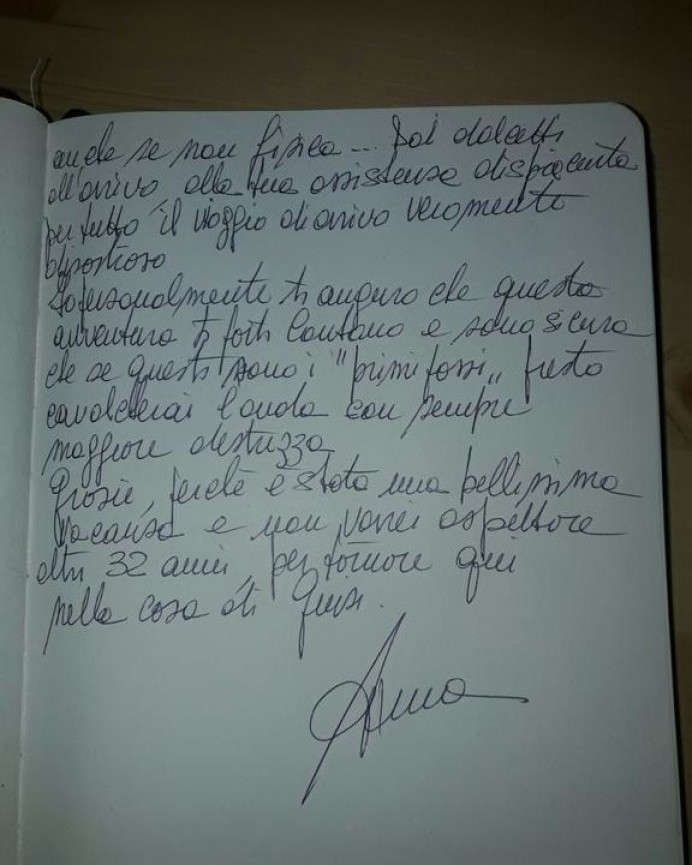 anche se non fisica... Dai dolcetti
all'arrivo, alla tua assistenza
per tutto il viaggio di arrivo veramente
Personalmente ti auguro che questa
avventura ti porti lontano e sono sicura
che se questi sono i "primi passi" presto
cavalcherai l'onda con sempre
maggiore destrezza
Grazie, perchè è stata una bellissima
vacanza e non vorrei aspettare
altri 32 anni, per tornare qui
nella casa di Giusi.
Anna